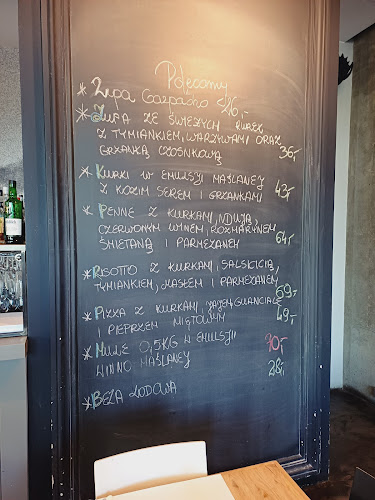 Polecamy
* Zupa Gazpacho 26,-
* Zupa ze świeżych kurek
z tymiankiem, warzywami oraz
grzanką czosnkową 36,-
* Kurki w emulsji maślanej
z kozim serem i grzankami 43,-
* Penne z kurkami, ndują,
czerwonym winem, rozmarynem,
śmietaną i parmezanem 64,-
* Risotto z kurkami, salsiccią,
tymiankiem, masłem i parmezanem 69,-
* Pizza z kurkami, guanciale
i pieprzem miętowym 49,-
* Mule 0,5kg w emulsji
winno maślanej 70,-
28,-
* Beza lodowa